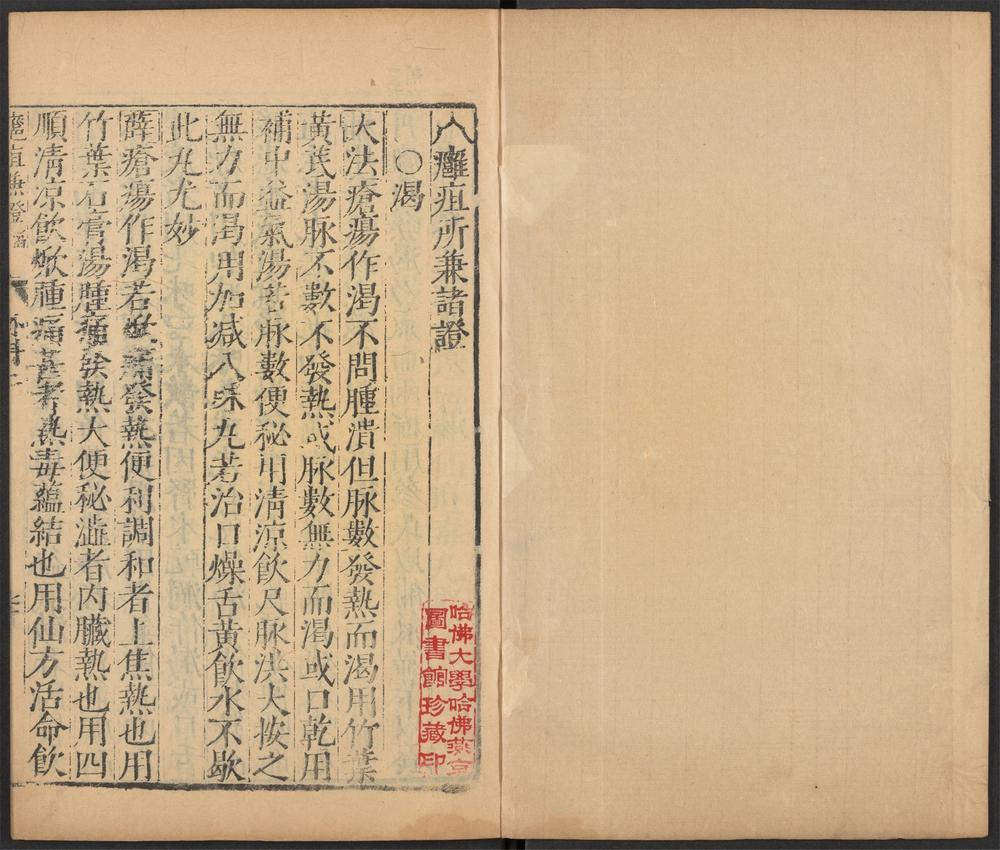 入癰疽所兼諸證
○渴
大法瘡瘍作渴不問腫潰但脉數發熱而渴用竹葉
黃芪湯脉不數不發熱或脉數無力而渴或口乾用
補中益氣湯若脉數便秘用清涼飲尺脉洪大按之
無力而渴用加減八味丸若治口燥舌黃飲水不歇
此丸尤妙
薛瘡瘍作渴若焮痛發熱便利調和者上焦熱也用
竹葉石膏湯腫痛發熱大便秘澁者内臟熱也用四
順清凉飲焮腫痛甚者熱毒蘊結也用仙方活命飲
癰疽兼證
外科
哈佛大學哈佛燕京
圖書館珍藏印